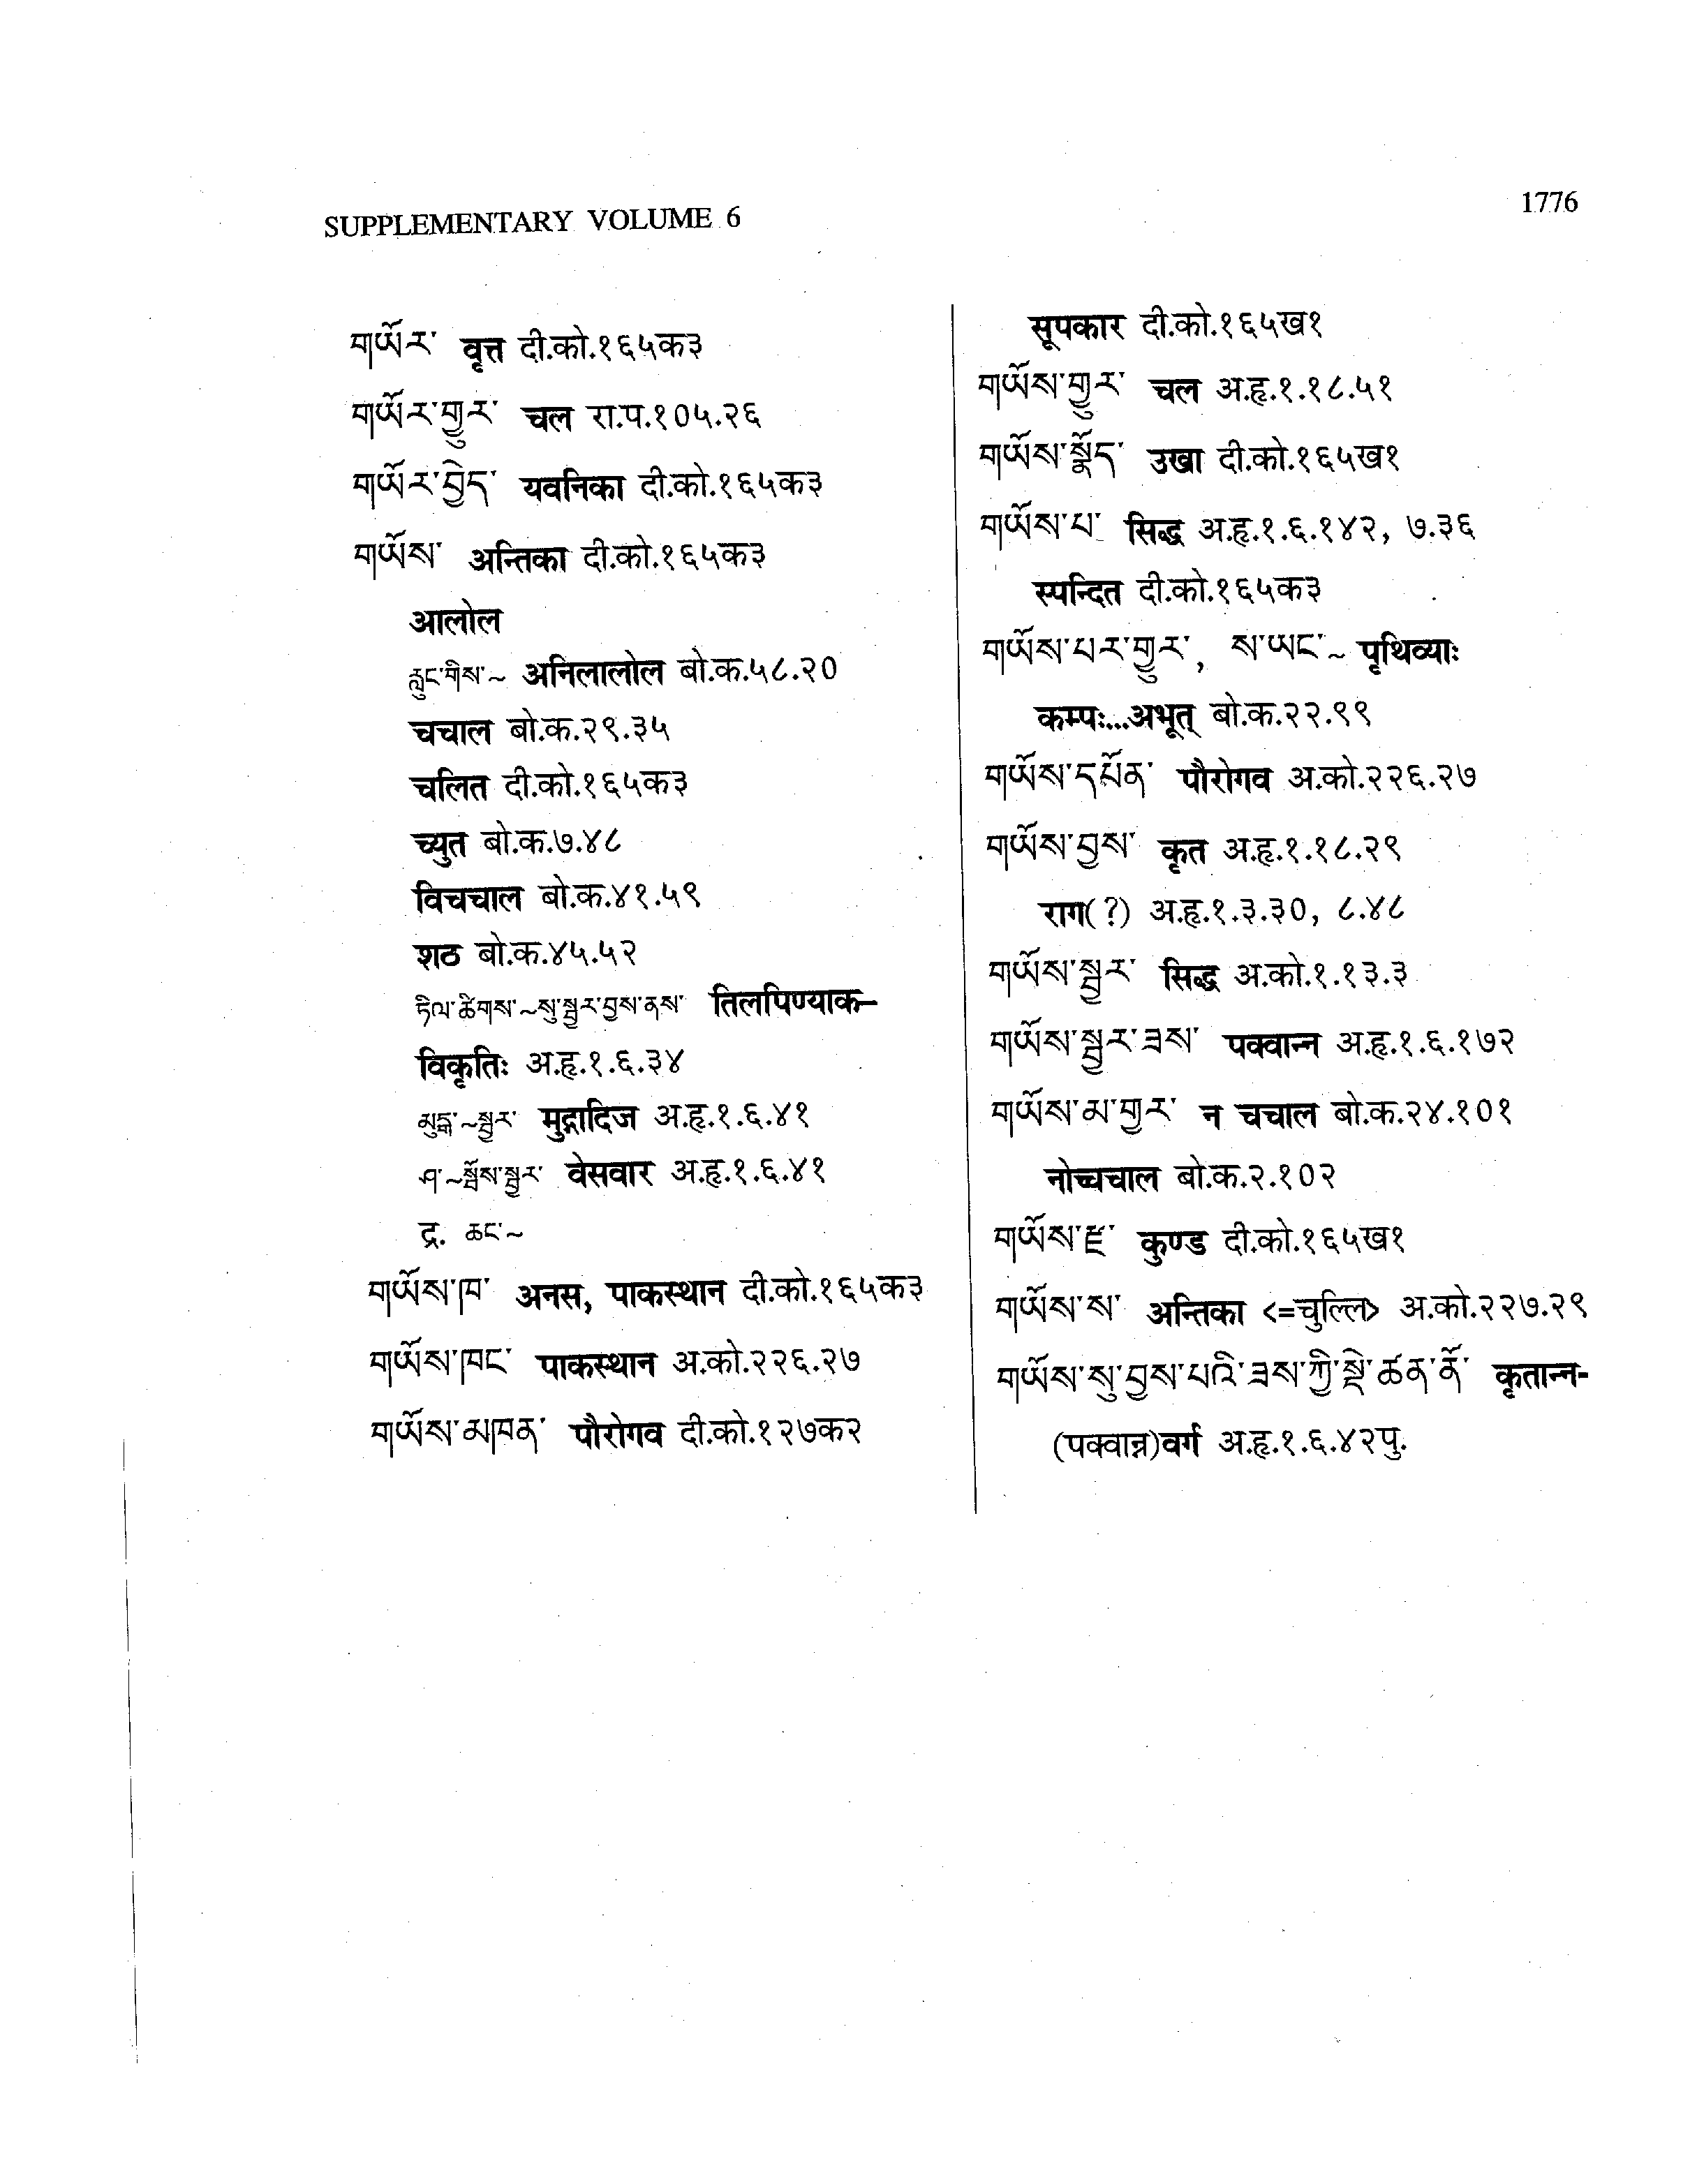 SUPPLEMENTARY VOLUME 6
1776
གཡོར་ वृत्त दी.को.१६५क३
གཡོར་གྱུར་ चल रा.प.१०५.२६
གཡོར་བྱེད་ यवनिका दी.को.१६५क३
གཡོས་ अन्तिका दी.को.१६५क३
आलोल
རླུང་གིས་~ अनिलालोल बो.क.५८.२०
चचाल बो.क.२९.३५
चलित दी.को.१६५क३
च्युत बो.क.७.४८
विचचाल बो.क.४१.५९
शठ बो.क.४५.५२
ཏིལ་ཚིགས་~སུ་སྦྱར་བྱས་ནས་ तिलपिण्याक–
विकृतिः अ.हृ.१.६.३४
མུདྒ་~སྦྱར་ मुद्गादिज अ.हृ.१.६.४१
ཤ་~སྦོས་སྦྱར་ वेसवार अ.हृ.१.६.४१
द्र. ཆང་~
གཡོས་ཁ་ अनस, पाकस्थान दी.को.१६५क३
གཡོས་ཁང་ पाकस्थान अ.को.२२६.२७
གཡོས་མཁན་ पौरोगव दी.को.१२७क२
सूपकार दी.को.१६५ख१
གཡོས་གྱུར་ चल अ.हृ.१.१८.५१
གཡོས་སྣོད་ उखा दी.को.१६५ख१
གཡོས་པ་ सिद्ध अ.हृ.१.६.१४२, ७.३६
स्पन्दित दी.को.१६५क३
གཡོས་པར་གྱུར་, ས་ཡང་~ पृथिव्याः
कम्पः...अभूत् बो.क.२२.९९
གཡོས་དཔོན་ पौरोगव अ.को.२२६.२७
གཡོས་བྱས་ कृत अ.हृ.१.१८.२९
राग(?) अ.हृ.१.३.३०, ८.४८
གཡོས་སྦྱར་ सिद्ध अ.को.१.१३.३
གཡོས་སྦྱར་ཟས་ पक्वान्न अ.हृ.१.६.१७२
གཡོས་མ་གྱར་ न चचाल बो.क.२४.१०१
नोच्चचाल बो.क.२.१०२
གཡོས་རྫ་ कुण्ड दी.को.१६५ख१
གཡོས་ས་ अन्तिका <=चुल्लि> अ.को.२२७.२९
གཡོས་སུ་བྱས་པའི་ཟས་ཀྱི་སྡེ་ཚན་ནོ་ कृतान्न-
(पक्वान्न)वर्ग अ.हृ.१.६.४२पु.